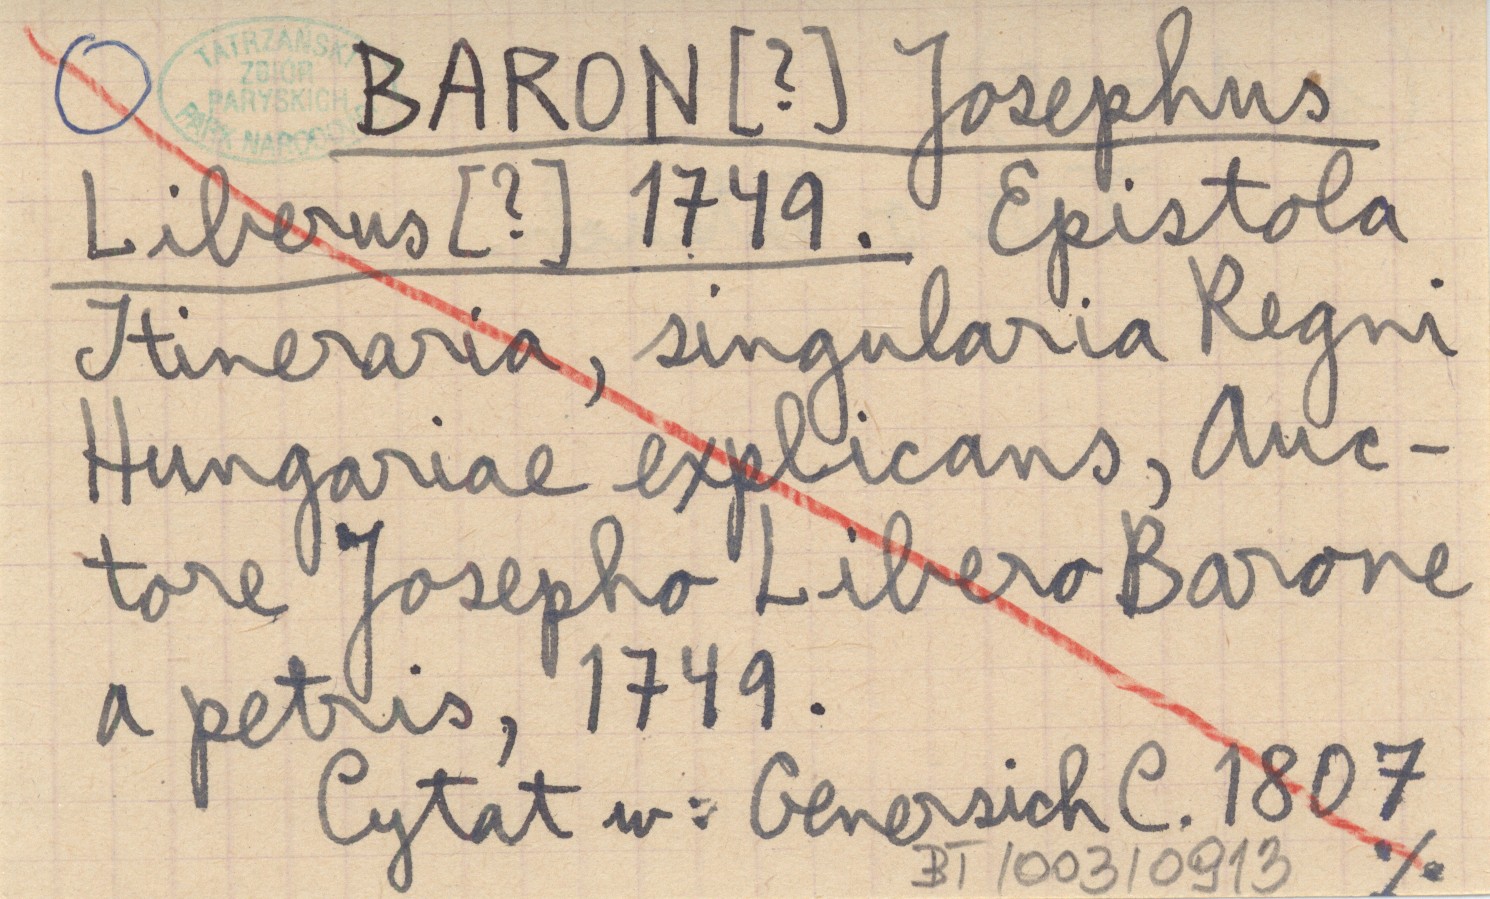 TATRZAŃSKI
ZBIÓR
PARYSKICH
PARK NARODOWY
BARON [?] Josephus
Liberus [?] 1749. Epistola
Itineraria, singularia Regni
Hungariae explicans, Auc-
tore Josepho Libero Barone
a petris, 1749.
Cytat w: Genersich C. 1807
BT/003/0913 ./.